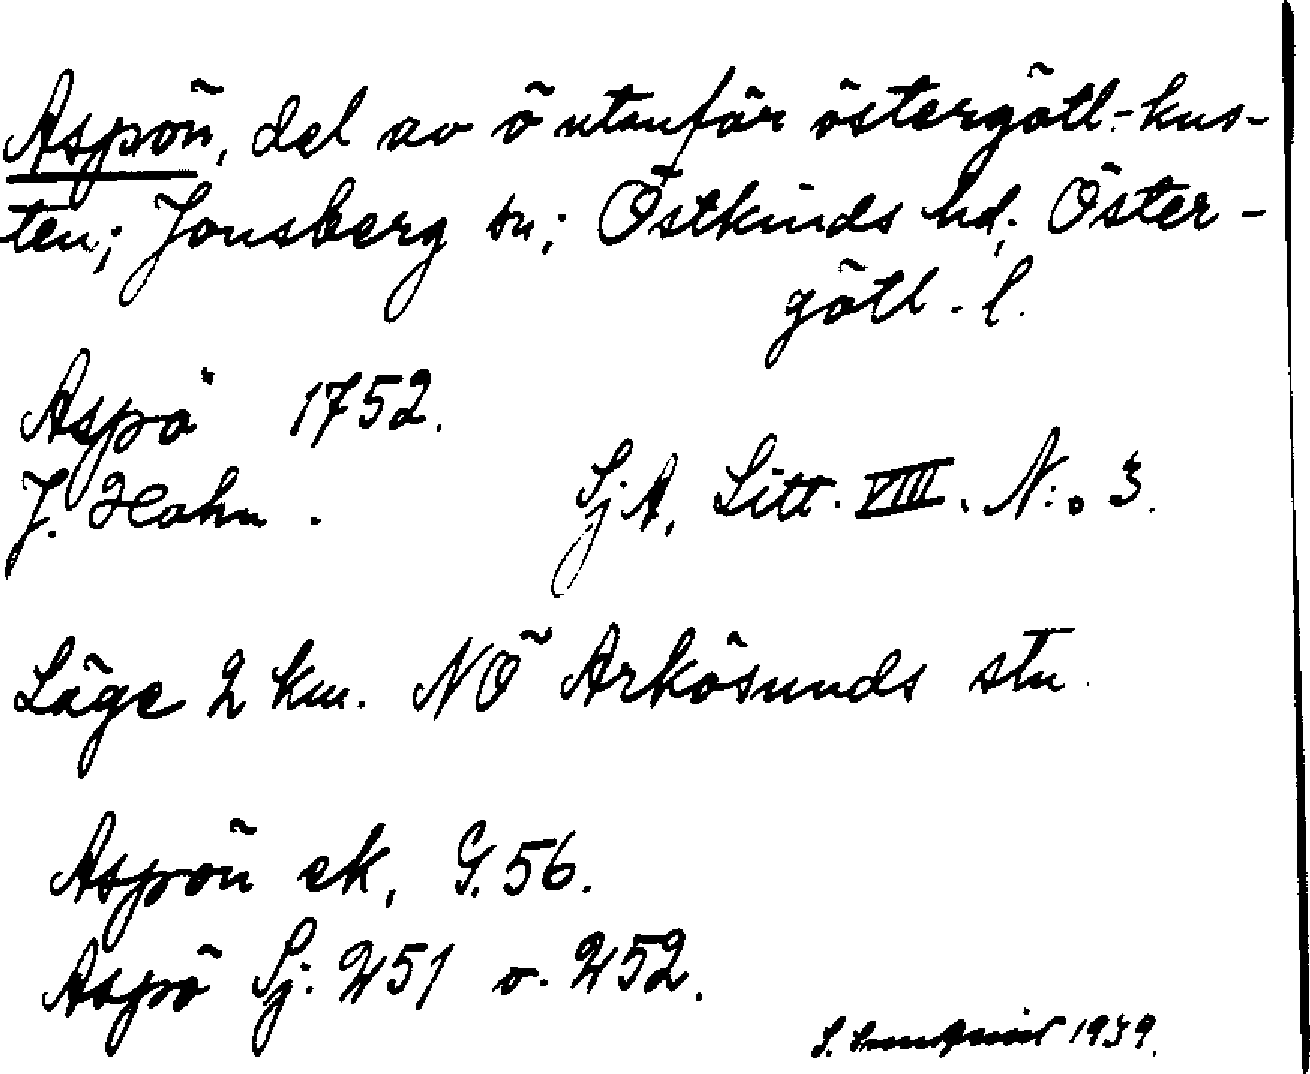 Aspön, del av ö utanför östergötl.-kus-
ten; Jonsberg sn; Östkinds hd; Öster-
götl. l.
Aspö 1752.
J. Hahn. SjA, Litt. VIII. N:o 3.
Läge 2 km. NÖ Arkösunds stn.
Aspön ek, G. 56.
Aspö Sj. 251 o. 252.
S. 1939.